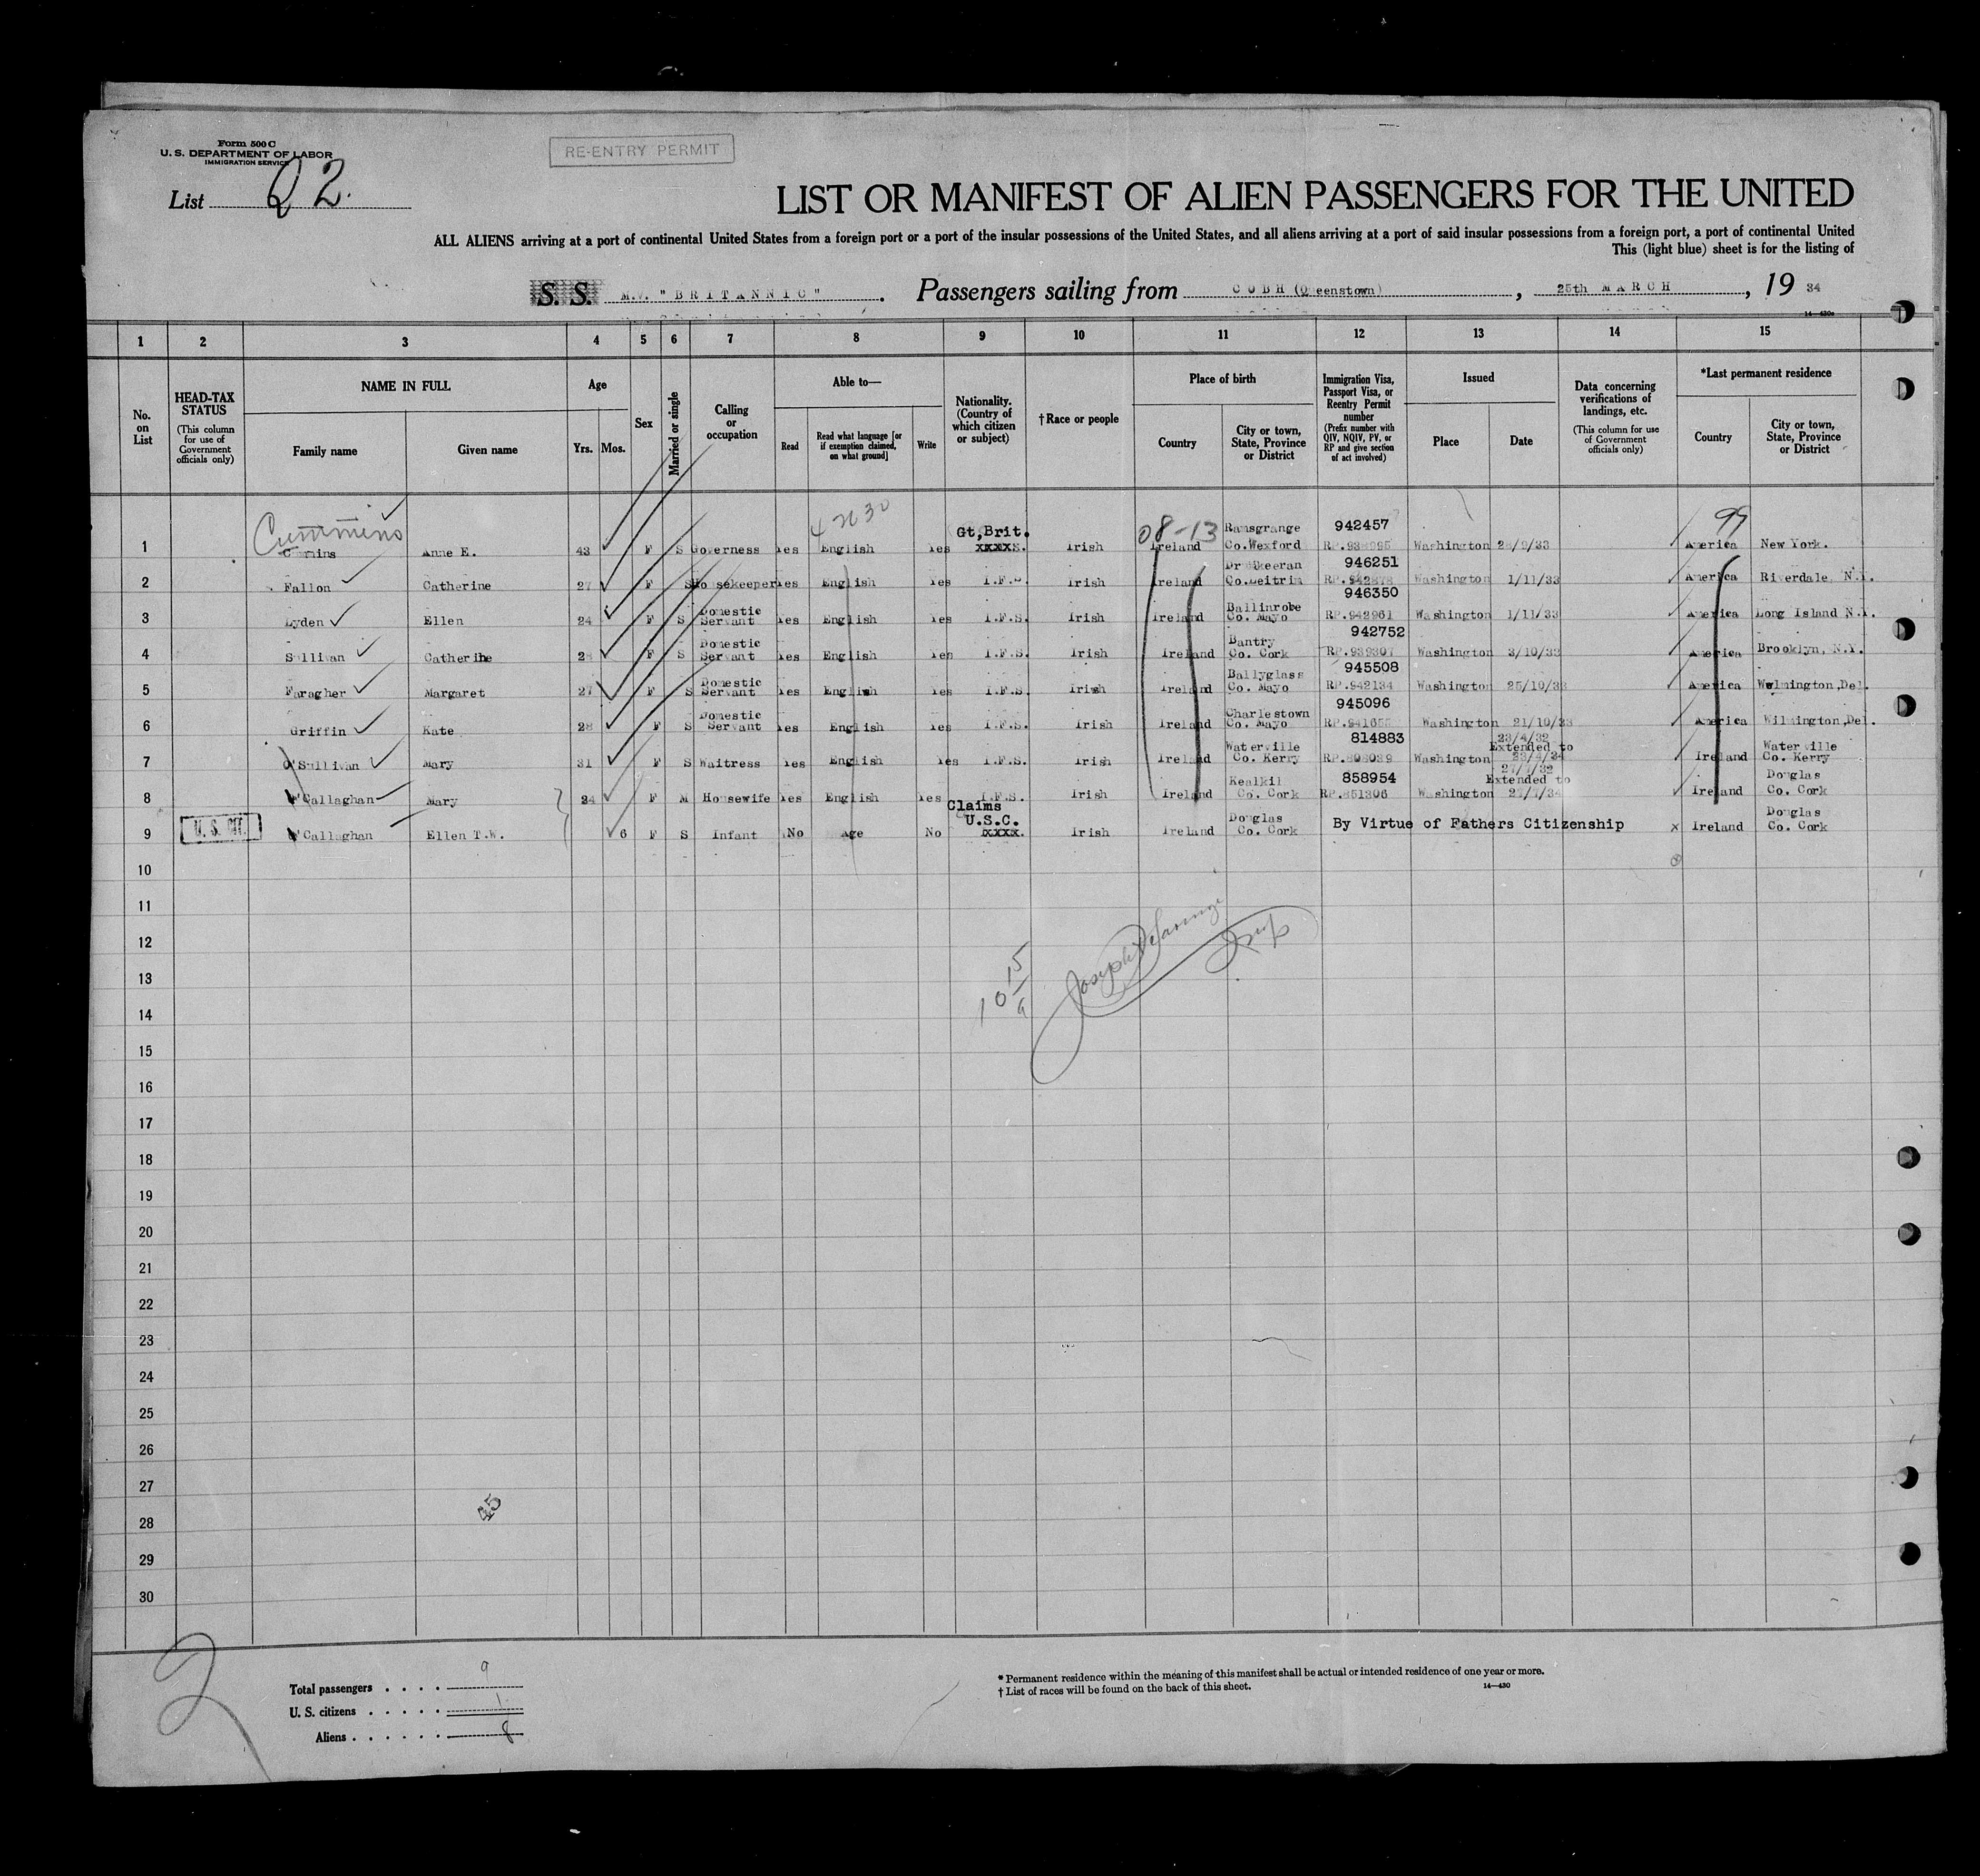 Form 500 C
U. S. DEPARTMENT OF LABOR
IMMIGRATION SERVICE
RE-ENTRY PERMIT
List 22.
LIST OR MANIFEST OF ALIEN PASSENGERS FOR THE UNITED
ALL ALIENS arriving at a port of continental United States from a foreign port or a port of the insular possessions of the United States, and all aliens arriving at a port of said insular possessions from a foreign port, a port of continental United
This (light blue) sheet is for the listing of
S. S. M.V. "BRITANNIC". Passengers sailing from COBH (Queenstown), 25th MARCH, 19 34
14—430c
1 2 3 4 5 6 7 8 9 10 11 12 13 14 15
No. on List
HEAD-TAX STATUS (This column for use of Government officials only)
NAME IN FULL Family name Given name
Age Yrs. Mos.
Sex
Married or single
Calling or occupation
Able to— Read Read what language [or if exemption claimed, on what ground] Write
Nationality. (Country of which citizen or subject)
†Race or people
Place of birth Country City or town, State, Province or District
Immigration Visa, Passport Visa, or Reentry Permit number (Prefix number with QIV, NQIV, PV, or RP and give section of act involved)
Issued Place Date
Data concerning verifications of landings, etc. (This column for use of Government officials only)
*Last permanent residence Country City or town, State, Province or District
Cummins 08-13 Gt,Brit. Ramsgrange 942457 99
1 Anne E. 43 F S Governess Yes English Yes xxxxS. Irish Ireland Co.Wexford Washington America New York.
946251
2 Fallon Catherine 27 F S Housekeeper Yes English Yes I.F.S. Irish Ireland Co.Leitrim Washington 1/11/33 America Riverdale, N.Y.
Domestic Ballinrobe 946350
3 Lyden Ellen 24 F S Servant Yes English Yes I.F.S. Irish Ireland Co. Mayo RP.942961 Washington 1/11/33 America Long Island N.Y.
Domestic Bantry 942752
4 Sullivan Catherine 28 F S Servant Yes English Yes I.F.S. Irish Ireland Co. Cork RP.939307 Washington 3/10/33 America Brooklyn, N.Y.
Domestic Ballyglass 945508
5 Faragher Margaret 27 F S Servant Yes English Yes I.F.S. Irish Ireland Co. Mayo RP.942134 Washington 25/10/33 America Wilmington,Del.
Domestic Charlestown 945096
6 Griffin Kate 28 F S Servant Yes English Yes I.F.S. Irish Ireland Co. Mayo RP.941655 Washington 21/10/33 America Wilmington,Del.
Waterville 814883 23/4/32 Extended to Waterville
7 O'Sullivan Mary 31 F S Waitress Yes English Yes I.F.S. Irish Ireland Co. Kerry RP.808039 Washington 23/4/34 Ireland Co. Kerry
Kealkil 858954 Extended to Douglas
8 O'Callaghan Mary 24 F M Housewife Yes English Yes I.F.S. Irish Ireland Co. Cork RP.851306 Washington Ireland Co. Cork
Claims U.S.C. Douglas Douglas
9 O'Callaghan Ellen T.W. 6 F S Infant No Age No xxxx. Irish Ireland Co. Cork By Virtue of Fathers Citizenship x Ireland Co. Cork
10
11
12
13
14
15
16
17
18
19
20
21
22
23
24
25
26
27
28
29
30
45
2
Total passengers . . . . 9
U. S. citizens . . . . . 1
Aliens . . . . . . 8
* Permanent residence within the meaning of this manifest shall be actual or intended residence of one year or more.
† List of races will be found on the back of this sheet. 14—430